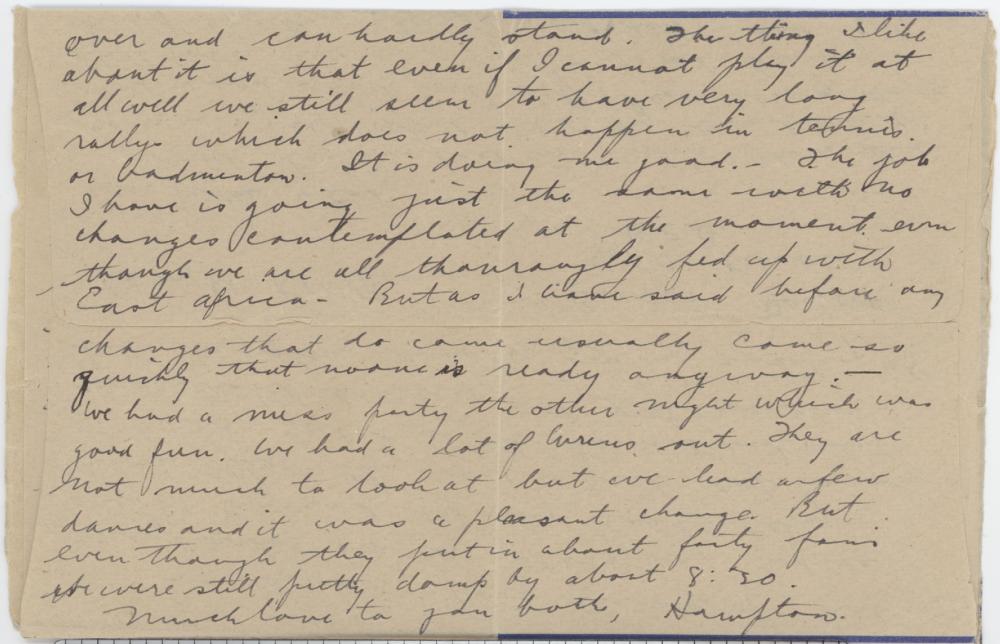 over and can hardly stand. The thing I like
about it is that even if I cannot play it at
all well we still seem to have very long
rallys which does not happen in tennis.
or badmenton. It is doing me good. - The job
I have is going just the same with no
changes contemplated at the moment. even
though we are all thouroughly fed up with
East Africa - But as I have said before any
changes that do come usually come so
quickly that noone is ready anyway. -
We had a mess party the other night which was
good fun. We had a lot of Wrens out. They are
not much to look at but we had a few
dances and it was a pleasant change. But
even though they put in about forty fans
we were still pretty damp by about 8:30.
Much love to you both, Hampton.